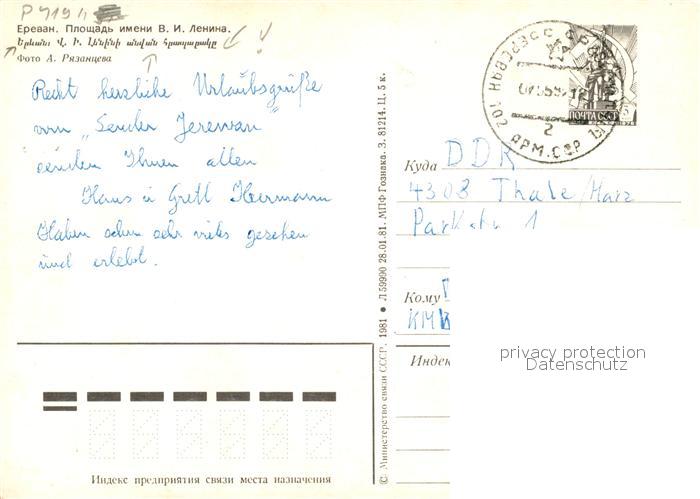 Ереван. Площадь имени В. И. Ленина.
Երևան: Վ. Ի. Լենինի անվան հրապարակը
Фото А. Рязанцева
Recht herzliche Urlaubsgrüße
vom „Sender Jerewan"
senden Ihnen allen
Hans u Gretl Hermann
Haben schon sehr vieles gesehen
und erlebt.
© Министерство связи СССР. 1981 ● Л 59990 28.01.81. МПФ Гознака. З. 81214. Ц. 5 к.
ПОЧТА СССР
АРМ.ССР
2
Куда DDR
4308 Thale/Harz
Parkstr 1
Кому
Индекс
privacy protection
Datenschutz
Индекс предприятия связи места назначения